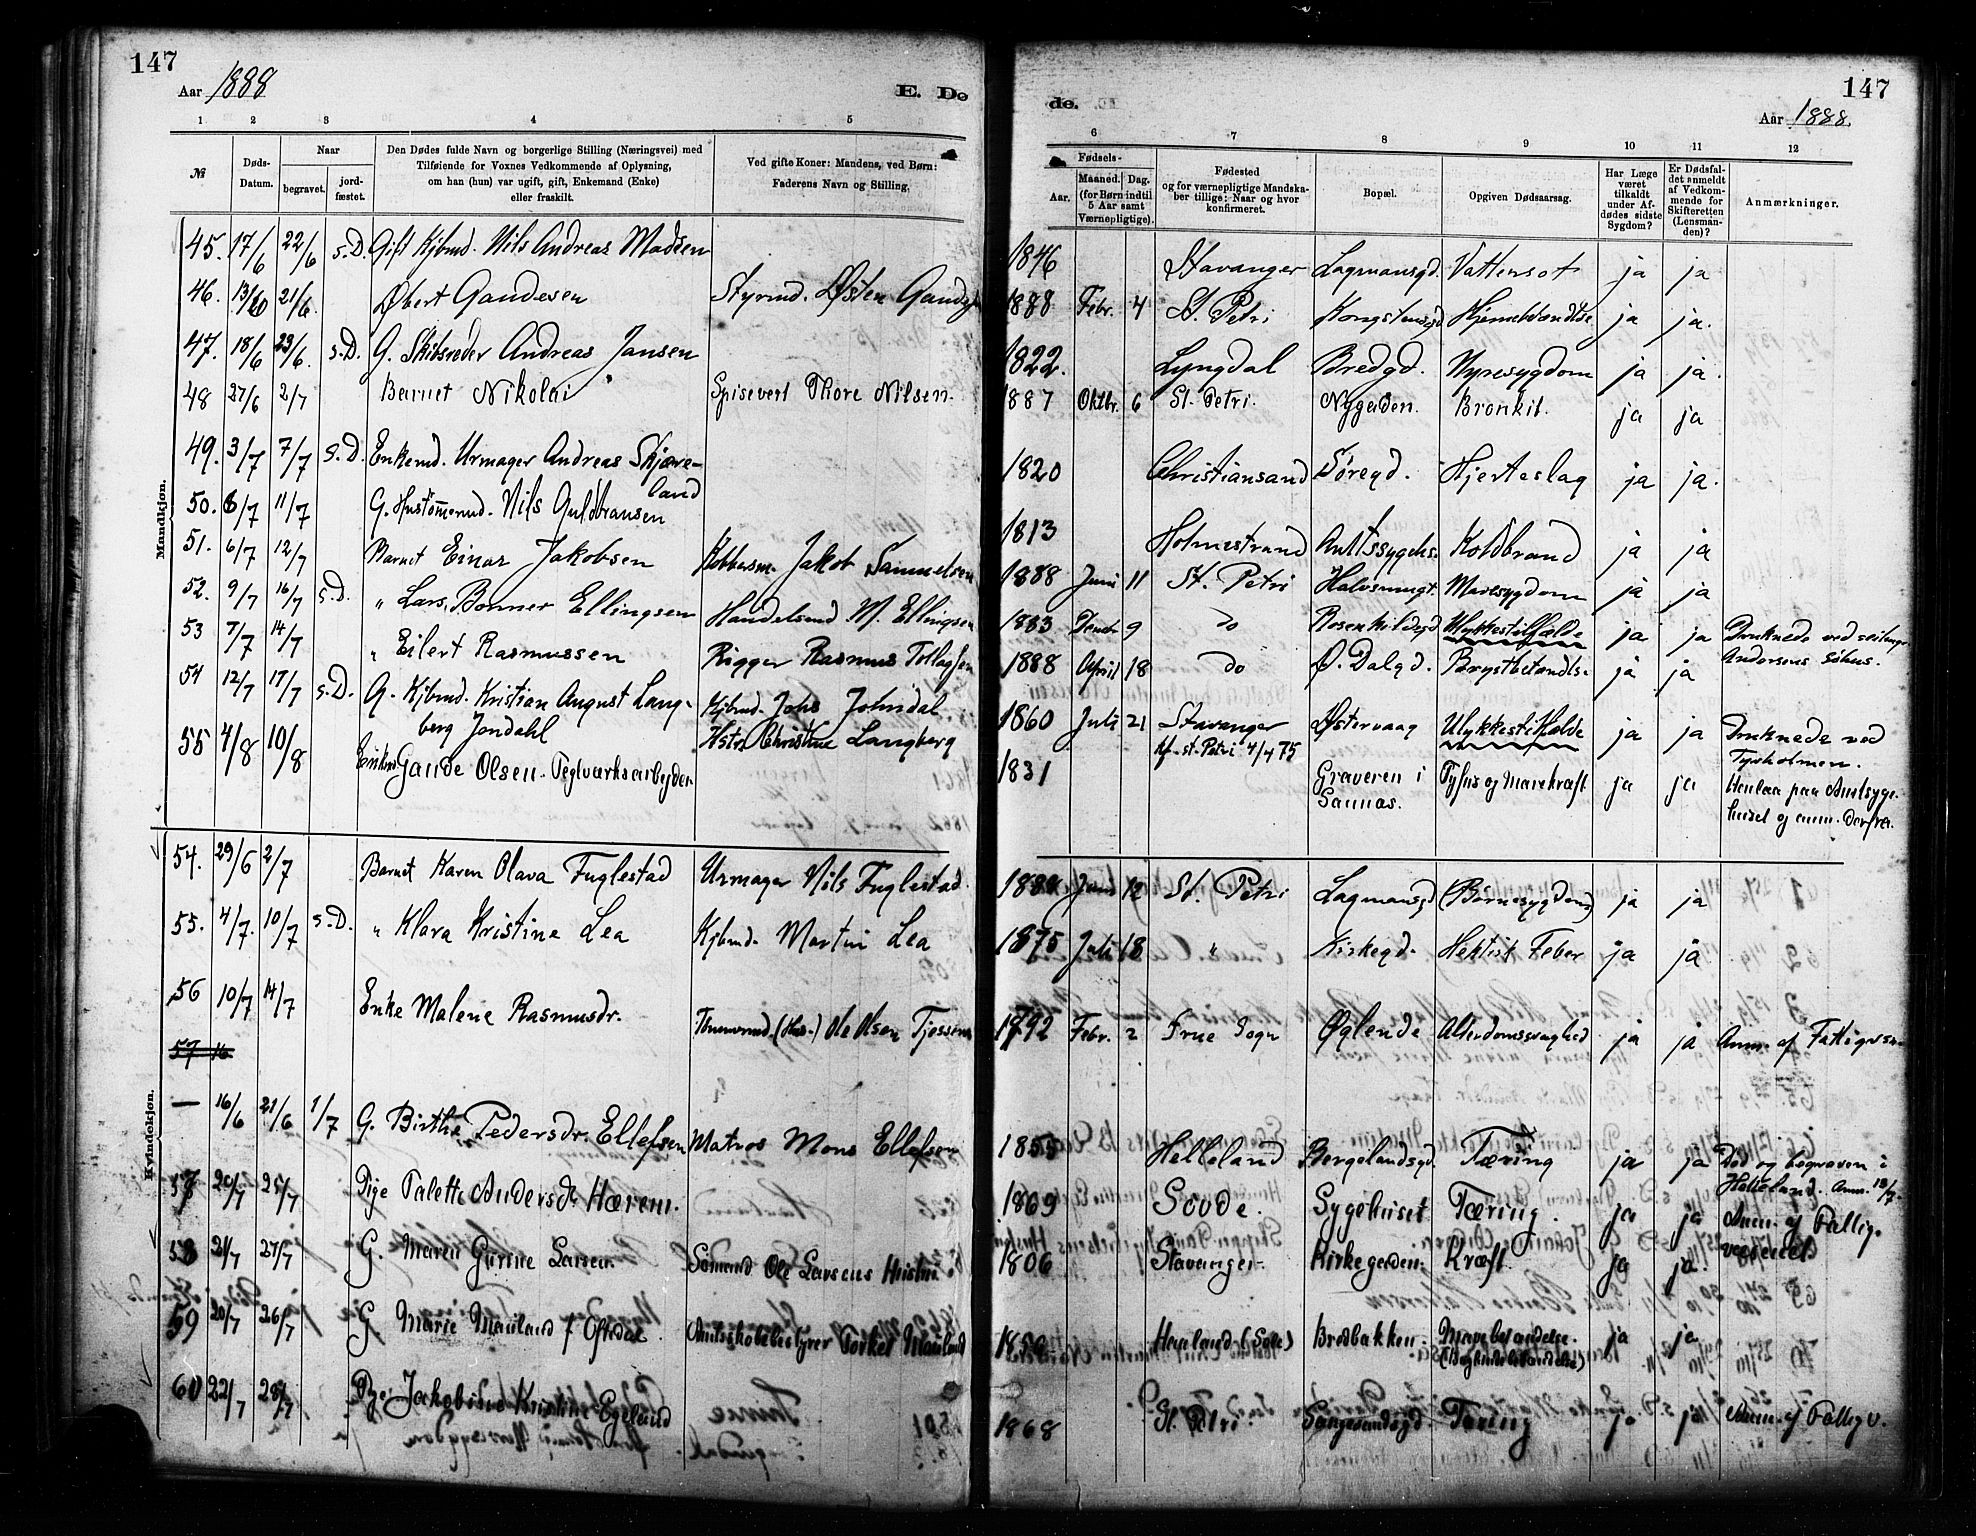 147
Aar 1888
E. Dø
1 2 3 4 5
№
Døds-Datum.
Naar
begravet.
jord-fæstet.
Den Dødes fulde Navn og borgerlige Stilling (Næringsvei) med
Tilføiende for Voxnes Vedkommende af Oplysning,
om han (hun) var ugift, gift, Enkemand (Enke)
eller fraskilt.
Ved gifte Koner: Mandens, ved Børn:
Faderens Navn og Stilling.
Mandkjøn.
45. 17/6 22/6 s.D. Gift Kjbmd. Nils Andreas Madsen
46. 21/6. Gaudesen Styrmd. Østen
47. 18/6 23/6. s.D. G. Skibsreder Andreas Jansen
48 27/6 2/7 Barnet Nikolai Spisevert Thore Nilsen.
49. 3/7 7/7 s.D. Enkemd. Urmager Andreas Skjæve-
land
50. 6/7 11/7 G. Nils Guldbransen
51. 6/7 12/7 Barnet Einar Jakobsen Kobbersm. Jakob Samuelsen
52. 9/7 16/7 s.D. " Lars Bonner Ellingsen Handelsmd M. Ellingsen
53 7/7 14/7 " Eilert Rasmussen Rigger Rasmus
54 12/7 17/7 s.D. G. Kjbmd. Kristian August Lang-
berg Jondahl
Kjbmd. Johs
Christine Langberg
55 4/8 10/8 Gaude Olsen. Teglværksarbeider
Kvindekjøn.
54. 29/6 2/7 Barnet Karen Olava Fuglestad Urmager Nils Fuglestad.
55. 4/7. 10/7 s.D. " Klara Kristine Lea Kjbmd. Martin Lea
56 10/7 14/7 Enke Malene Rasmusdr. Ole Olsen
57 16
— 16/6 21/6 1/7 G. Birthe Pedersdr. Ellefsen Matros Mons Ellefsen
57 20/7 25/7 Pige Anders Hærem.
58 21/7 27/7 G. Maren Gurine Larsen. Sømand Ole Larsens Hustru
59 20/7 26/7 G Marie Mauland f Oftedal. Torkel Mauland
60 22/7 28/7 Pige Jakobine Kristine Egeland
147
Aar 1888
de.
6 7 8 9 10 11 12
Fødsels-
Aar.
Maaned.
Dag.
(for Børn indtil
5 Aar samt
Værnepligtige).
Fødested
og for værnepligtige Mandska-
ber tillige: Naar og hvor
konfirmeret.
Bopæl.
Opgiven Dødsaarsag.
Har Læge
været
tilkaldt
under Af-
dødes sidste
Sygdom?
Er Dødsfal-
det anmeldt
af Vedkom-
mende for
Skifteretten
(Lensman-
den)?
Anmærkninger.
1846 Stavanger Lagmansgd. Vattersot ja ja
1888 Febr. 4 St. Petri Kongstensgd ja ja.
1822. Lyngdal Bredgd. Nyresygdom ja ja.
1887 Oktbr. 6 St. Petri. Nygaden. Bronkit. ja ja
1820 Christiansand Søregd. Hjerteslag ja ja.
1813 Holmestrand Koldbrand ja ja
1888 Juni 11 St. Petri Mavesygdom ja ja
1883 9 Do Rosenkildegd Ulykkestilfælde ja ja Druknede ved
Andersens Søhus.
1888 April 18 Do Ø. Dalgd. Brystbetændelse ja ja
1860 Juli 21 Stavanger Østervaag Ulykkestilfælde ja ja Druknede ved
St. Petri 4/4 75
1831 Graveren i
Saunas.
Tyfus og Mavekræft ja ja
Juni 12 St. Petri Lagmansgd (Børnesygdom) ja ja
1875 Juli 18 " Kirkegd. Hektisk Feber ja ja
1792 Febr. 2 Frue Sogn Øglende Alderdomssvaghed ja ja Anm. af
1855 Helleland Bergelandsgd. Tæring ja ja Død og begraven i
Helleland.
1869 Sovde. Sygehuset Tæring. ja ja Anm. af Fattig-
væsenet
1806 Stavanger Kirkegaden. Kræft. ja ja.
(Sole) Bredbakken. Mavebetændelse. ja ja
1868 St. Petri Tæring ja ja Anm. af Fattigv.